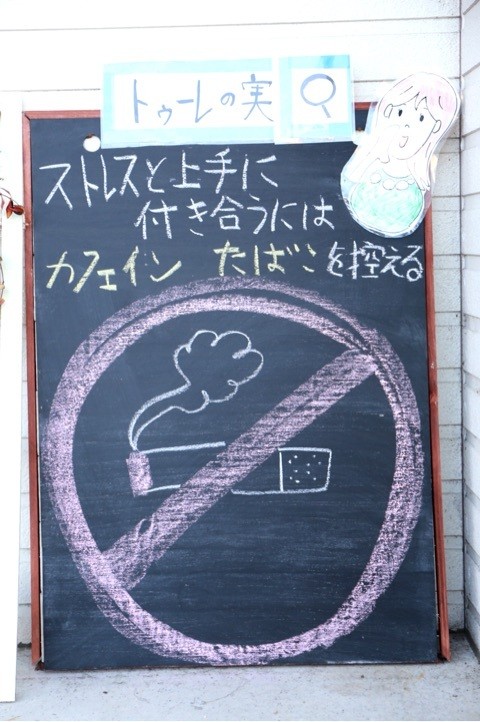 トゥーレの実
ストレスと上手に
付き合うには
カフェイン たばこを控える